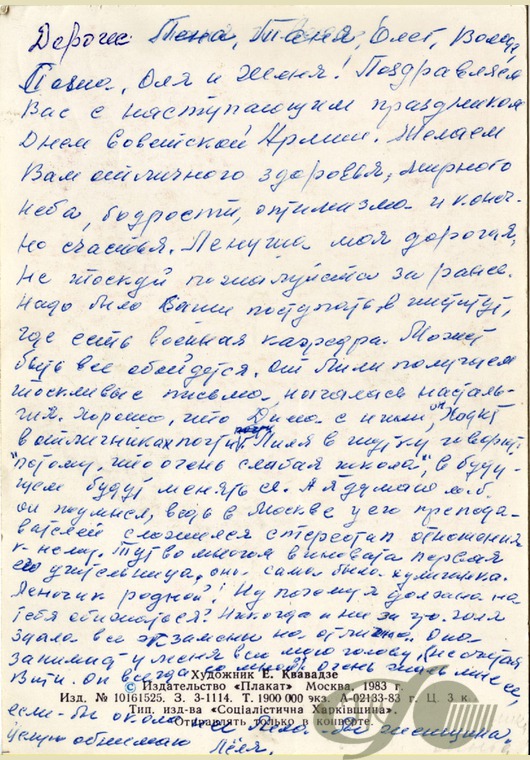 Дорогие Лена, Таня, Олег, Вова,
Оля и Женя! Поздравляем
Вас с наступающим праздником
Днем Советской Армии. Желаем
Вам отличного здоровья, мирного
неба, бодрости, оптимизма и конеч-
но счастья. Ленуша моя дорогая,
не тоскуй пожалуйста за ранее.
Надо было Ване поступать в институт,
где есть военная кафедра. Может
быть все обойдется. От Лили получаем
тоскливые письма, началась насталь-
гия. Хорошо, что Дима с ними он ходит
в отличниках почти. Лиля в шутку говорит:
"потому, что очень слабая школа", в буду-
щем будут менять ее. А я думаю м.б.
он поумнел, ведь в Москве у его препода-
вателей сложился стереотип отношения
к нему. Тут во многом виновата первая
его учительница, она сама была хулиганка.
Леночик родной! Ну почему я должна на
тебя обижаться? Никогда и ни за что. Голя
сдала все экзамены на отлично. Она
занимает у меня всю мою голову (не считая
Вити. Он всегда со мной) очень
Художник Е. Квавадзе
© Издательство «Плакат» Москва, 1983 г.
Изд. № 10161525. З. 3-1114. Т. 1900 000 экз. А-02133-83 г. Ц. 3 к.
Тип. изд-ва «Соціалістична Харківщина».
Отправлять только в конверте.
если бы около нее была бы женщина.
Целую обнимаю Лёля.